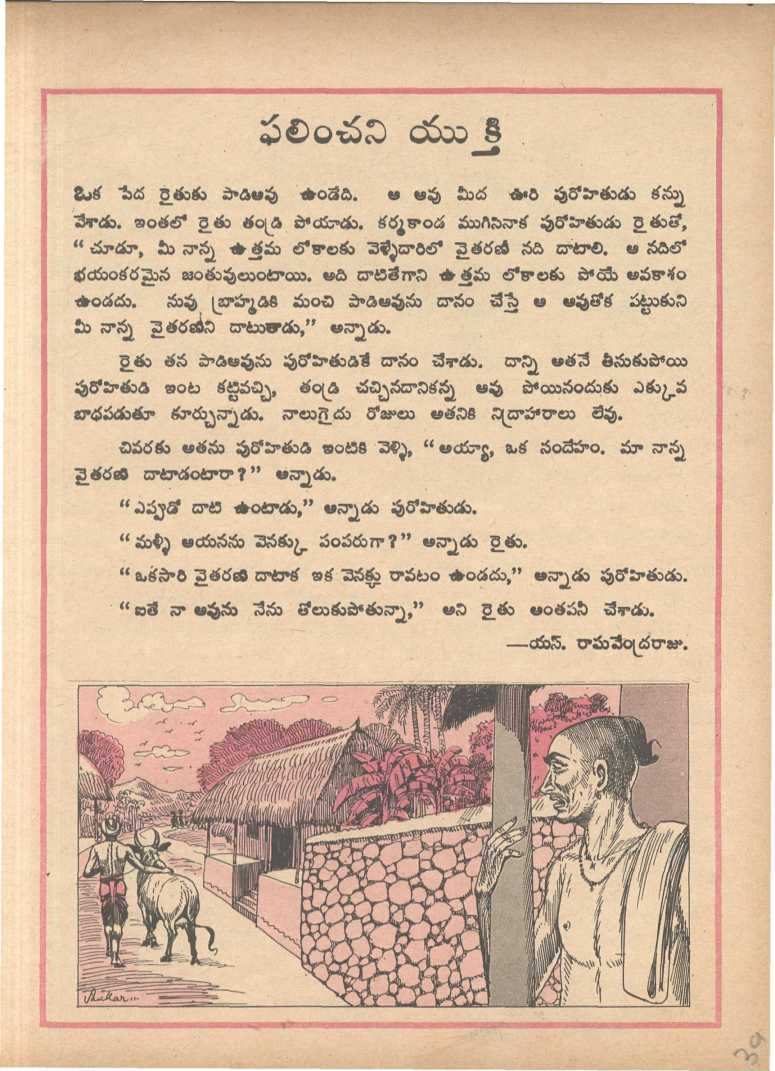 ఫలించని యుక్తి
ఒక పేద రైతుకు పాడిఆవు ఉండేది. ఆ ఆవు మీద ఊరి పురోహితుడు కన్ను
వేశాడు. ఇంతలో రైతు తండ్రి పోయాడు. కర్మకాండ ముగిసినాక పురోహితుడు రైతుతో,
“చూడూ, మీ నాన్న ఉత్తమ లోకాలకు వెళ్ళేదారిలో వైతరణీ నది దాటాలి. ఆ నదిలో
భయంకరమైన జంతువులుంటాయి. అది దాటితేగాని ఉత్తమ లోకాలకు పోయే అవకాశం
ఉండదు. నువు బ్రాహ్మడికి మంచి పాడిఆవును దానం చేస్తే ఆ ఆవుతోక పట్టుకుని
మీ నాన్న వైతరణిని దాటుతాడు,” అన్నాడు.
రైతు తన పాడిఆవును పురోహితుడికే దానం చేశాడు. దాన్ని అతనే తీసుకుపోయి
పురోహితుడి ఇంట కట్టివచ్చి, తండ్రి చచ్చినదానికన్న ఆవు పోయినందుకు ఎక్కువ
బాధపడుతూ కూర్చున్నాడు. నాలుగైదు రోజులు అతనికి నిద్రాహారాలు లేవు.
చివరకు అతను పురోహితుడి ఇంటికి వెళ్ళి, “అయ్యా, ఒక సందేహం. మా నాన్న
వైతరణి దాటాడంటారా?” అన్నాడు.
“ఎప్పుడో దాటి ఉంటాడు,” అన్నాడు పురోహితుడు.
“మళ్ళీ ఆయనను వెనక్కు పంపరుగా?” అన్నాడు రైతు.
“ఒకసారి వైతరణి దాటాక ఇక వెనక్కు రావటం ఉండదు,” అన్నాడు పురోహితుడు.
“ఐతే నా ఆవును నేను తోలుకుపోతున్నా,” అని రైతు అంతపనీ చేశాడు.
—యస్. రాఘవేంద్రరాజు.
39